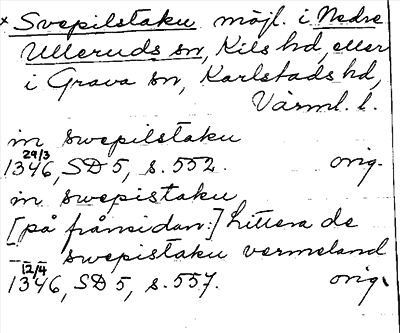 * Svepilstaku möjl. i Nedre
Ulleruds sn, Kils hd, eller
i Grava sn, Karlstads hd,
Värml. l.
in swepilstaku
29/3
1346, SD 5, s. 552. orig.
in swepistaku
[på frånsidan:] Littera de
--- swepistaku vermeland
12/4
1346, SD 5, s. 557. orig.